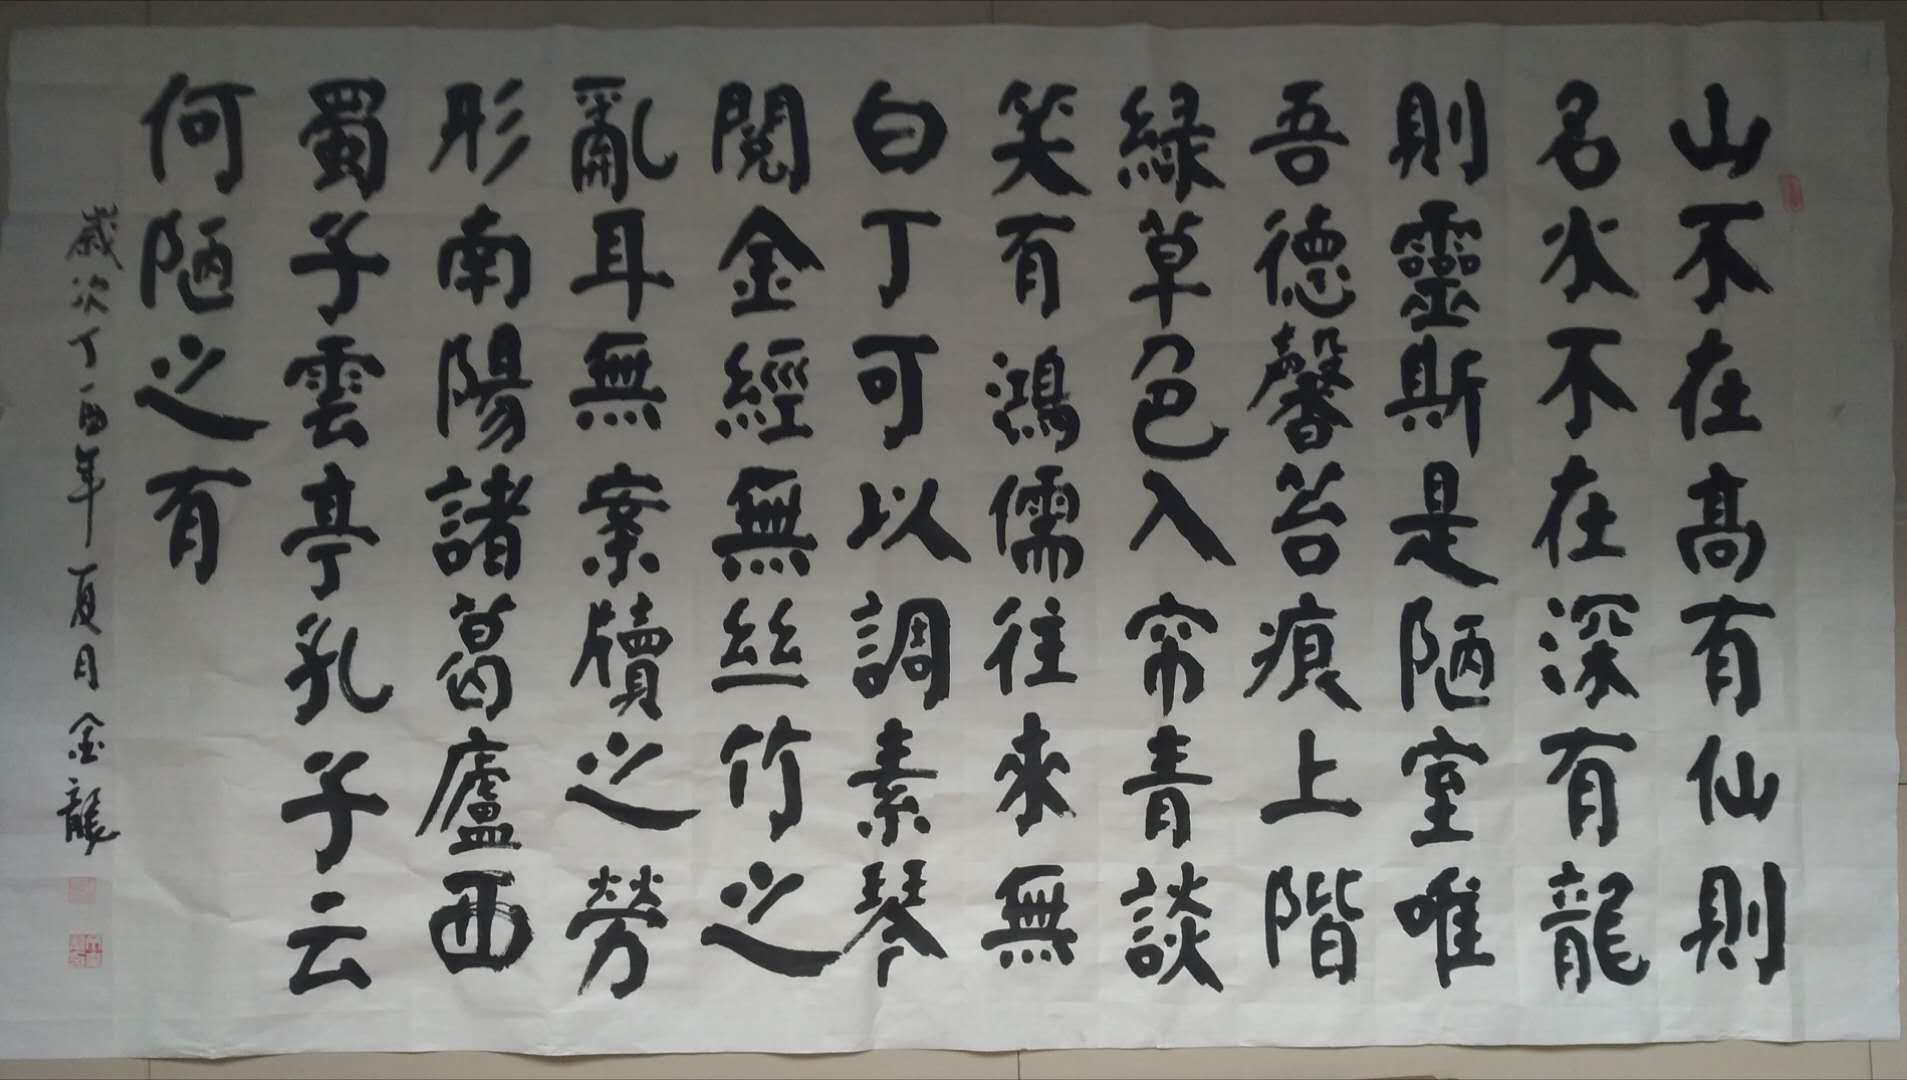 山不在高有仙則
名水不在深有龍
則靈斯是陋室唯
吾德馨苔痕上階
緑草色入帘青談
笑有鴻儒往來無
白丁可以調素琴
閱金經無丝竹之
亂耳無案牘之勞
形南陽諸葛廬西
蜀子雲亭孔子云
何陋之有
歲次丁酉年夏月金龍